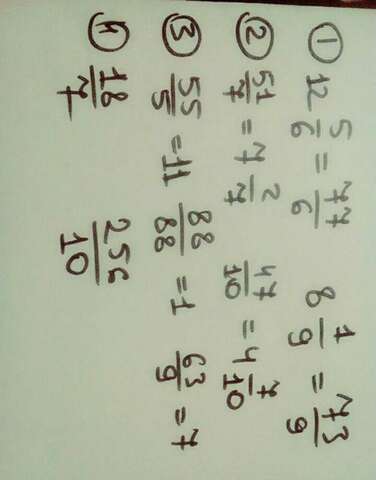 ① 12 5/6 = 77/6 8 1/9 = 73/9
② 51/7 = 7 2/7 47/10 = 4 7/10
③ 55/5 = 11 88/88 = 1 63/9 = 7
④ 18/7 256/10